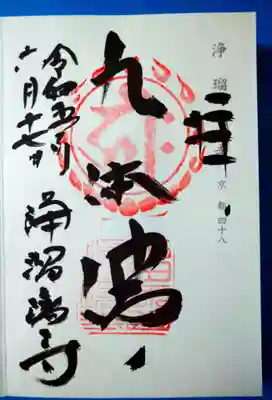 浄瑠 京都四十八
九体佛
令和五年
六月十七日
浄瑠璃寺